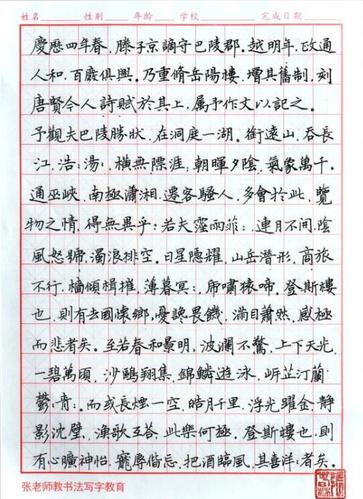 姓名 性别 年龄 学校 完成日期
慶曆四年春，滕子京謫守巴陵郡。越明年，政通
人和，百廢俱興。乃重修岳陽樓，增其舊制，刻
唐賢今人詩賦於其上，屬予作文以記之。
予觀夫巴陵勝狀，在洞庭一湖。銜遠山，吞長
江，浩：湯：，橫無際涯，朝暉夕陰，氣象萬千。
通巫峽，南極瀟湘，遷客騷人，多會於此，覽
物之情，得無異乎：若夫霪雨菲：，連月不開，陰
風怒號，濁浪排空，日星隱耀，山岳潛形，商旅
不行，檣傾楫摧，薄暮冥：，虎嘯猿啼。登斯樓
也，則有去國懷鄉，憂讒畏譏，滿目蕭然，感極
而悲者矣。至若春和景明，波瀾不驚，上下天光，
一碧萬頃，沙鷗翔集，錦鱗遊泳，岸芷汀蘭
鬱：青：。而或長煙一空，皓月千里，浮光躍金，靜
影沈璧，漁歌互答，此樂何極。登斯樓也，則
有心曠神怡，寵辱偕忘，把酒臨風，其喜洋：者矣。
张老师教书法写字教育